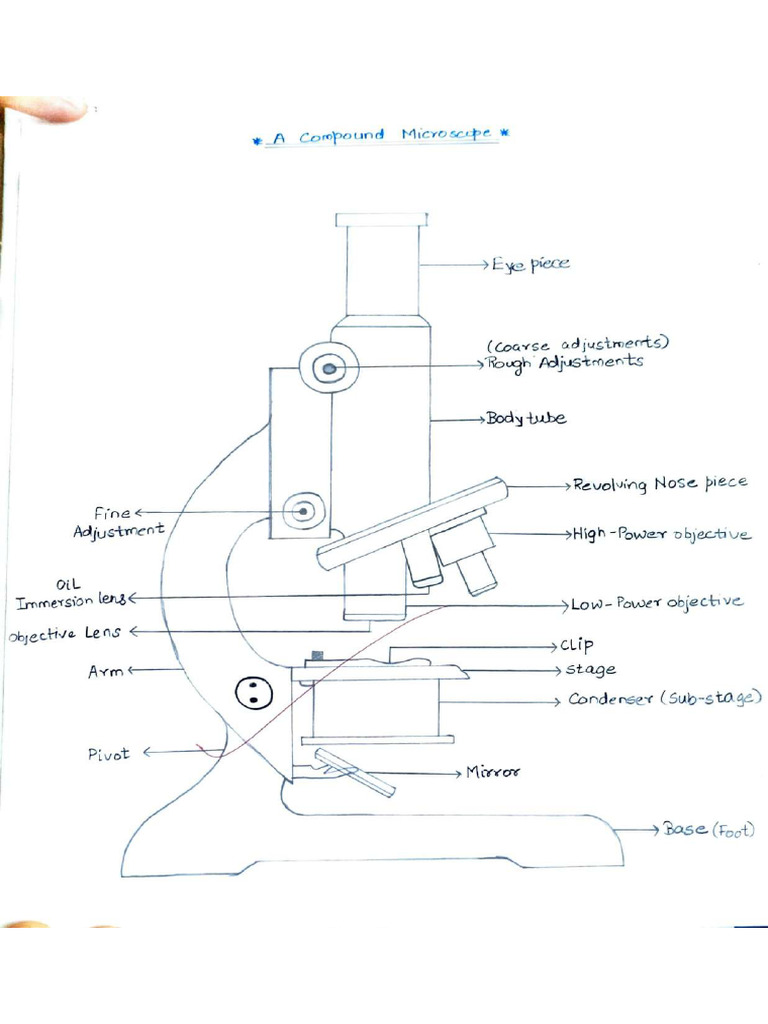 * A Compound Microscope *
Eye piece
(Coarse adjustments)
Rough Adjustments
Body tube
Revolving Nose piece
Fine
Adjustment
High-Power objective
OiL
Immersion lens
Low-Power objective
Objective Lens
Clip
Stage
Arm
Condenser (Sub-stage)
Pivot
Mirror
Base (Foot)